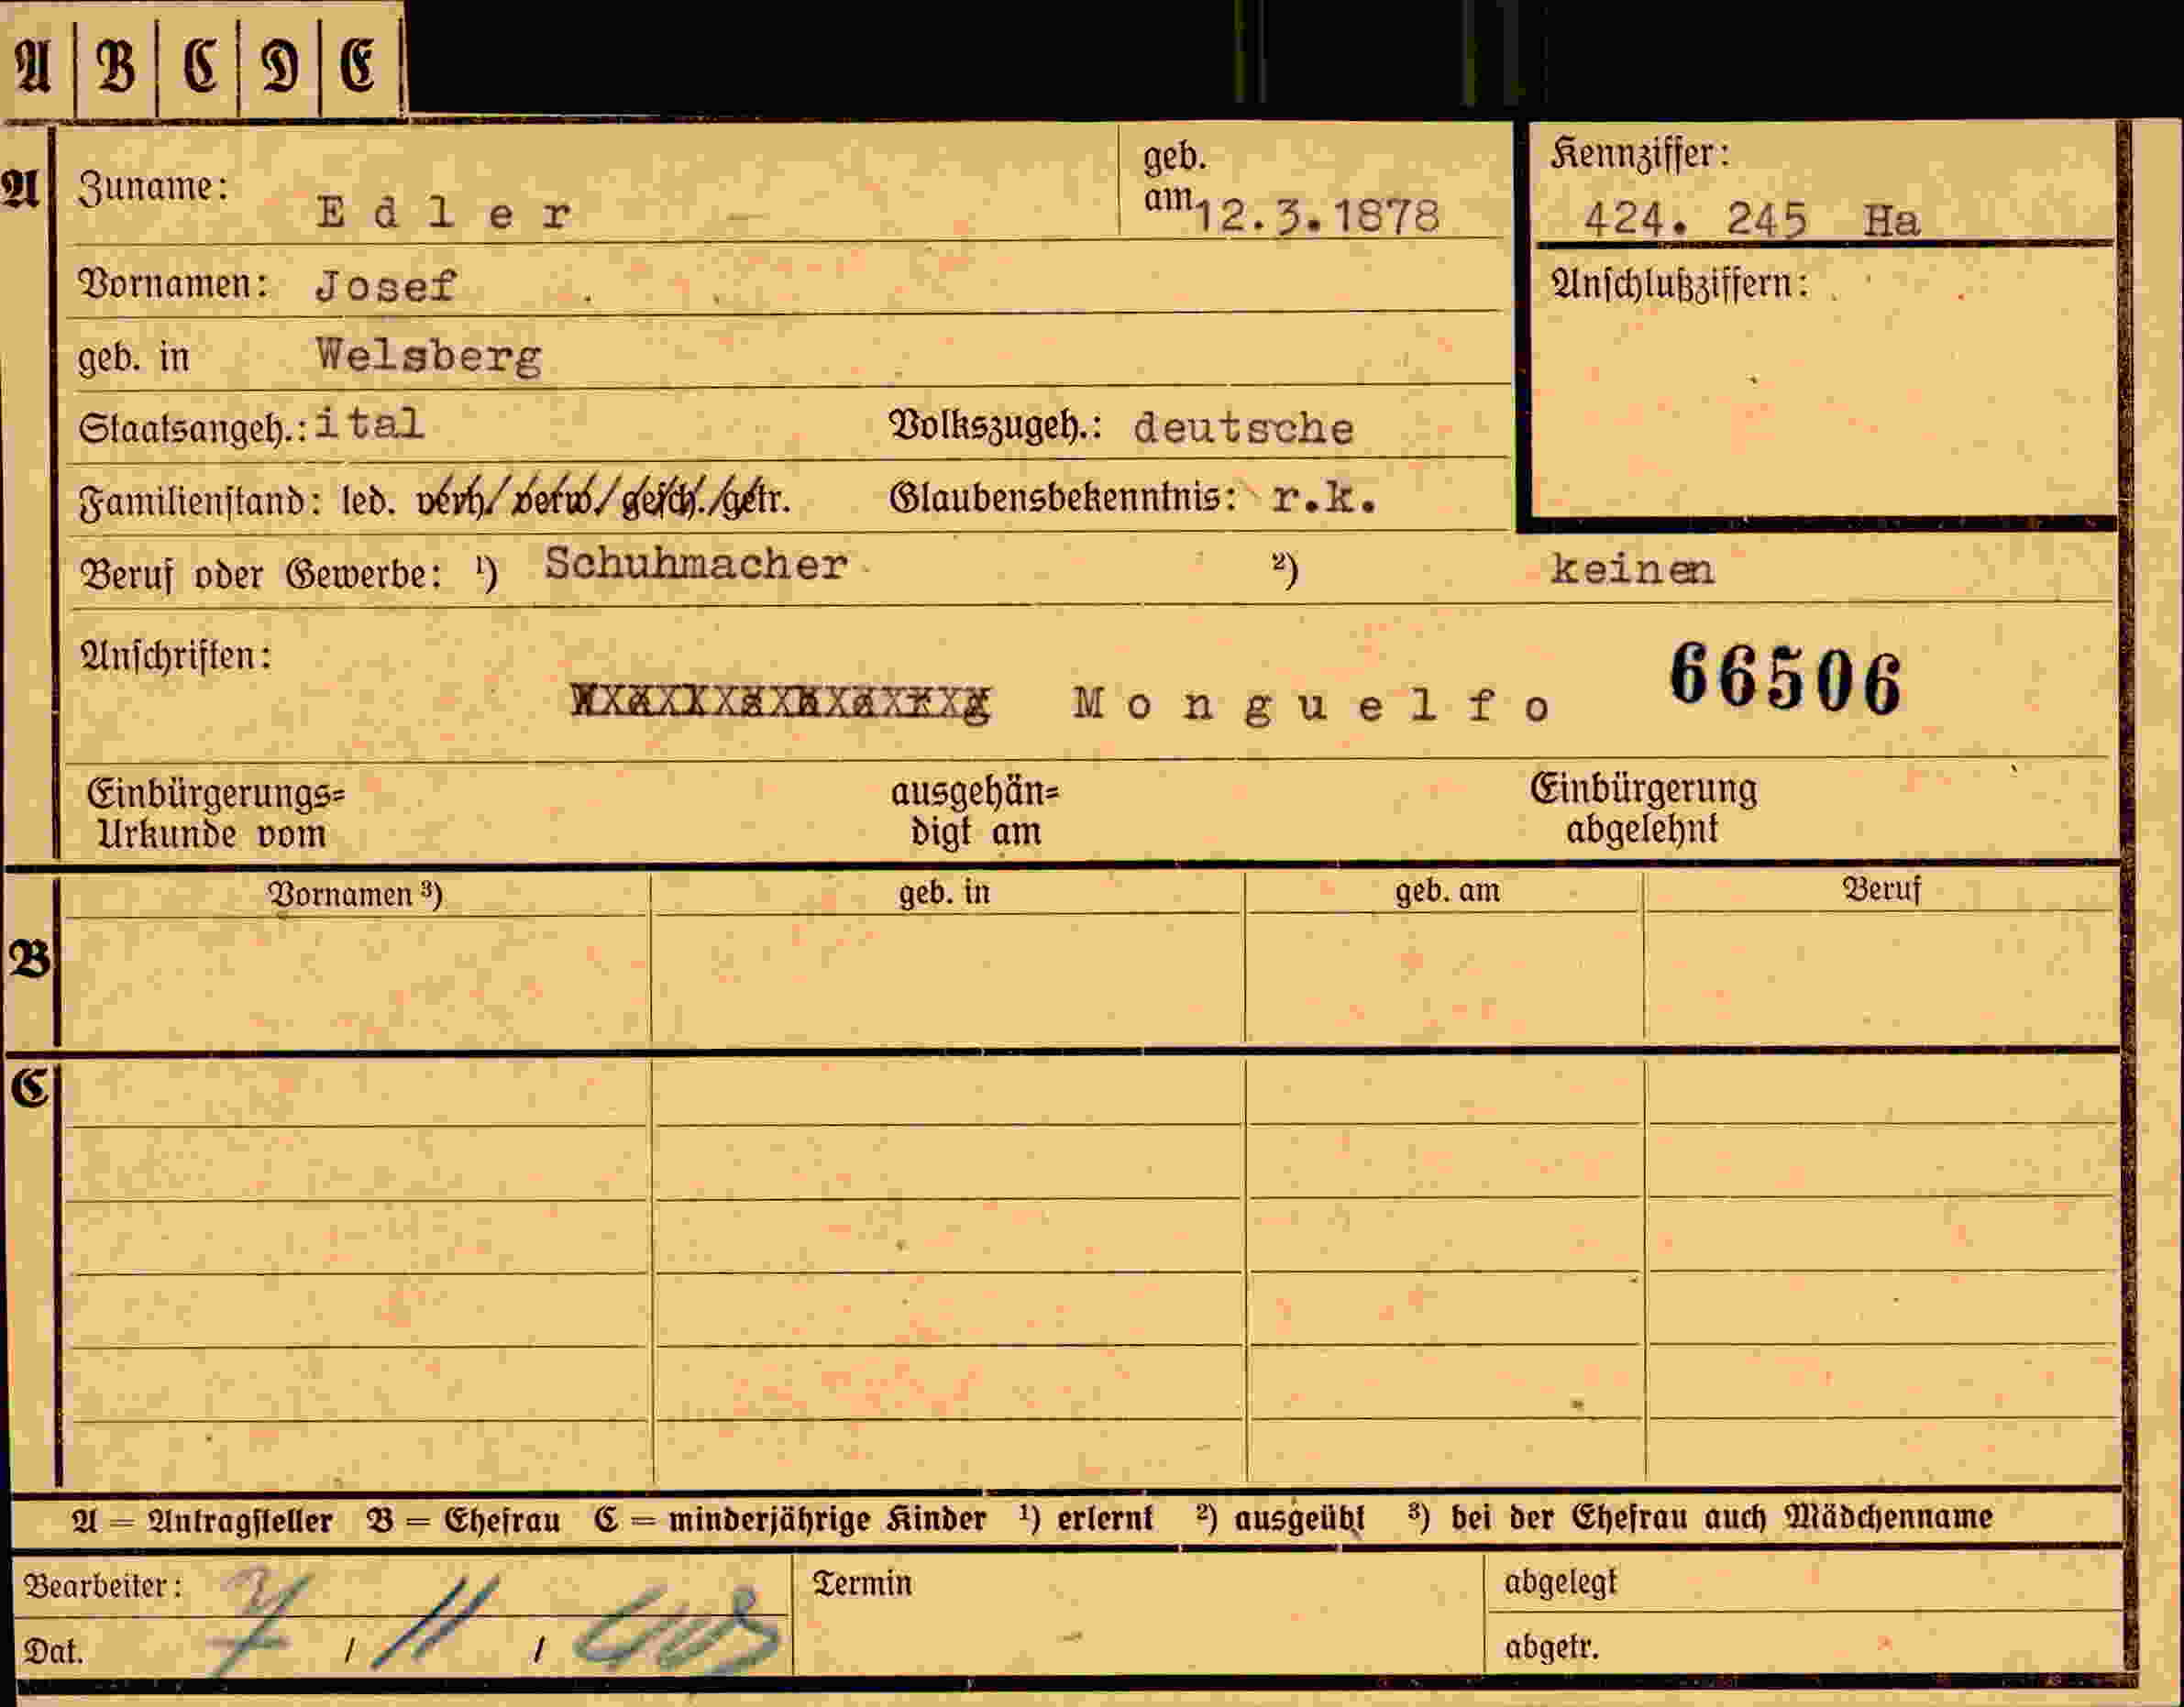 A B C D E
A
Zuname: Edler
geb. am 12.3.1878
Kennziffer:
424. 245 Ha
Vornamen: Josef
Anschlußziffern:
geb. in Welsberg
Staatsangeh.: ital Volkszugeh.: deutsche
Familienstand: led. verh./verw./gesch./getr. Glaubensbekenntnis: r.k.
Beruf oder Gewerbe: ¹) Schuhmacher ²) keinen
Anschriften:
Monguelfo 66506
Einbürgerungs=
Urkunde vom
ausgehän=
digt am
Einbürgerung
abgelehnt
B
Vornamen ³) geb. in geb. am Beruf
C
A = Antragsteller B = Ehefrau C = minderjährige Kinder ¹) erlernt ²) ausgeübt ³) bei der Ehefrau auch Mädchenname
Bearbeiter: Termin abgelegt
Dat. 7 / 11 / abgetr.